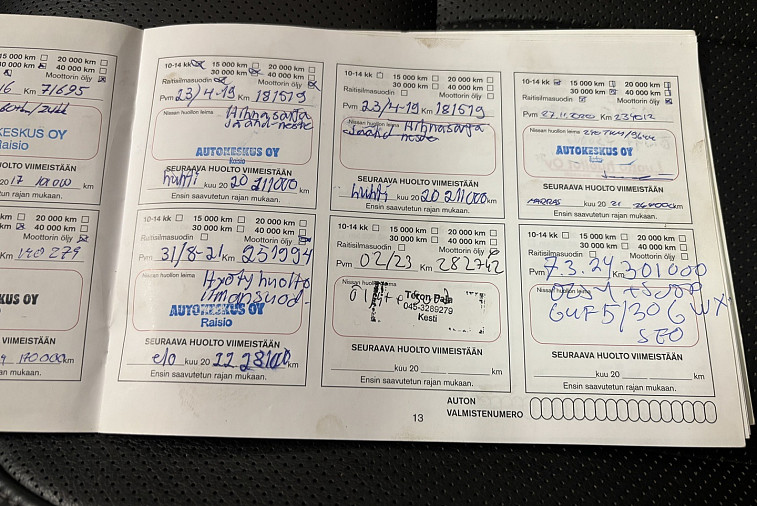 15 000 km 20 000 km
30 000 km 40 000 km
Moottorin öljy
Km 71695
KESKUS OY
Raisio
HOLTO VIIMEISTÄÄN
tun rajan mukaan.
20 000 km
40 000 km
Moottorin öljy
Km 140 279
KUS OY
VIIMEISTÄÄN
170 000 km
rajan mukaan.
10-14 kk 15 000 km 20 000 km
30 000 km 40 000 km
Raitisilmasuodin Moottorin öljy
Pvm 23/4-19 Km 181579
Nissan huollon leima Hihnasarja
AUTOKESKUS OY
Raisio
SEURAAVA HUOLTO VIIMEISTÄÄN
huhti kuu 20 20 211000 km
Ensin saavutetun rajan mukaan.
10-14 kk 15 000 km 20 000 km
30 000 km 40 000 km
Raitisilmasuodin Moottorin öljy
Pvm 23/4-19 Km 181579
Nissan huollon leima Hihnasarja
SEURAAVA HUOLTO VIIMEISTÄÄN
huhti kuu 20 20 211000 km
Ensin saavutetun rajan mukaan.
10-14 kk 15 000 km 20 000 km
30 000 km 40 000 km
Raitisilmasuodin Moottorin öljy
Pvm 27.11.2020 Km 234012
Nissan huollon leima
AUTOKESKUS OY
SEURAAVA HUOLTO VIIMEISTÄÄN
MARRAS kuu 20 21 264000 km
Ensin saavutetun rajan mukaan.
10-14 kk 15 000 km 20 000 km
30 000 km 40 000 km
Raitisilmasuodin Moottorin öljy
Pvm 31/8-21 Km 251994
Nissan huollon leima Hyöty huolto
ilmansuod.
AUTOKESKUS OY
Raisio
SEURAAVA HUOLTO VIIMEISTÄÄN
elo kuu 20 22 28100 km
Ensin saavutetun rajan mukaan.
10-14 kk 15 000 km 20 000 km
30 000 km 40 000 km
Raitisilmasuodin Moottorin öljy
Pvm 02/23 Km 282742
Nissan huollon leima
Töron Paja
045-3289279
Kesti
SEURAAVA HUOLTO VIIMEISTÄÄN
kuu 20 km
Ensin saavutetun rajan mukaan.
10-14 kk 15 000 km 20 000 km
30 000 km 40 000 km
Raitisilmasuodin Moottorin öljy
Pvm 7.3.24 Km 301000
Nissan huollon leima
GULF 5/30 G WX
SEURAAVA HUOLTO VIIMEISTÄÄN
kuu 20 km
Ensin saavutetun rajan mukaan.
AUTON
VALMISTENUMERO
13